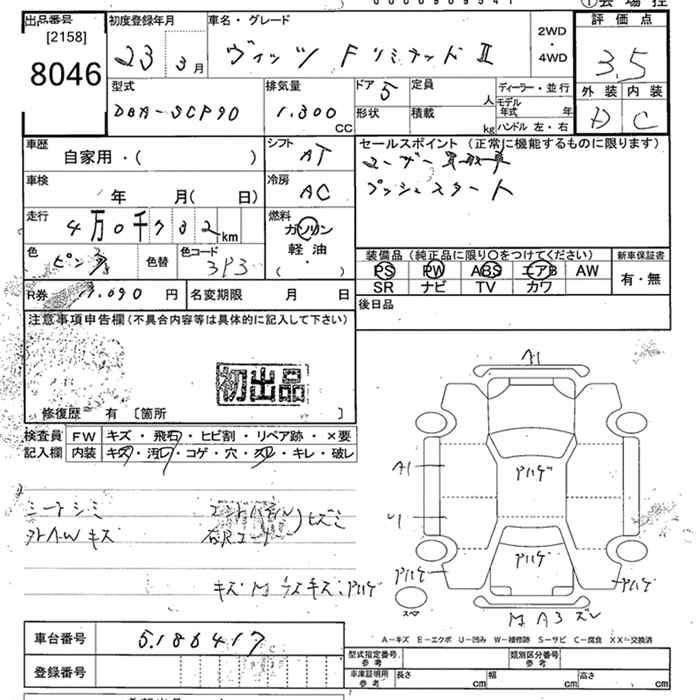 出品番号
[2158]
8046
初度登録年月
23 3月
車名・グレード
ヴィッツ FリミテッドⅡ
2WD
・
4WD
評価点
3.5
外装 内装
D C
型式
DBA-SCP90
排気量
1,300 CC
ドア 5
定員 人
形状
積載 kg
ディーラー・並行
モデル年式 年
ハンドル 左・右
車歴
自家用・( )
シフト
AT
セールスポイント (正常に機能するものに限ります)
ユーザー買取車
プッシュスタート
車検
年 月( 日)
冷房
AC
走行
4万0千732km
燃料
ガソリン
軽油
( ・ )
色
ピンク
色替
色コード
3P3
装備品 (純正品に限り○をつけてください)
PS PW ABS エアB AW
SR ナビ TV カワ
新車保証書
有・無
R券
円
名変期限 月 日
後日品
注意事項申告欄(不具合内容等は具体的に記入して下さい)
初出品
修復歴 有 〔箇所 〕
検査員
記入欄
FW キズ・飛石・ヒビ割・リペア跡・×要
内装 キズ・汚レ・コゲ・穴・スレ・キレ・破レ
シートシミ
外AWキズ
ヒズミ
A1
A1
アハゲ
アハゲ
アハゲ
アハゲ
スペア
A3 ズレ
A-キズ E-エクボ U-凹み W-補修跡 S-サビ C-腐食 XX-交換済
車台番号 5186417
登録番号
型式指定番号
参考
類別区分番号
参考
車庫証明用
参考
長さ cm
幅 cm
高さ cm